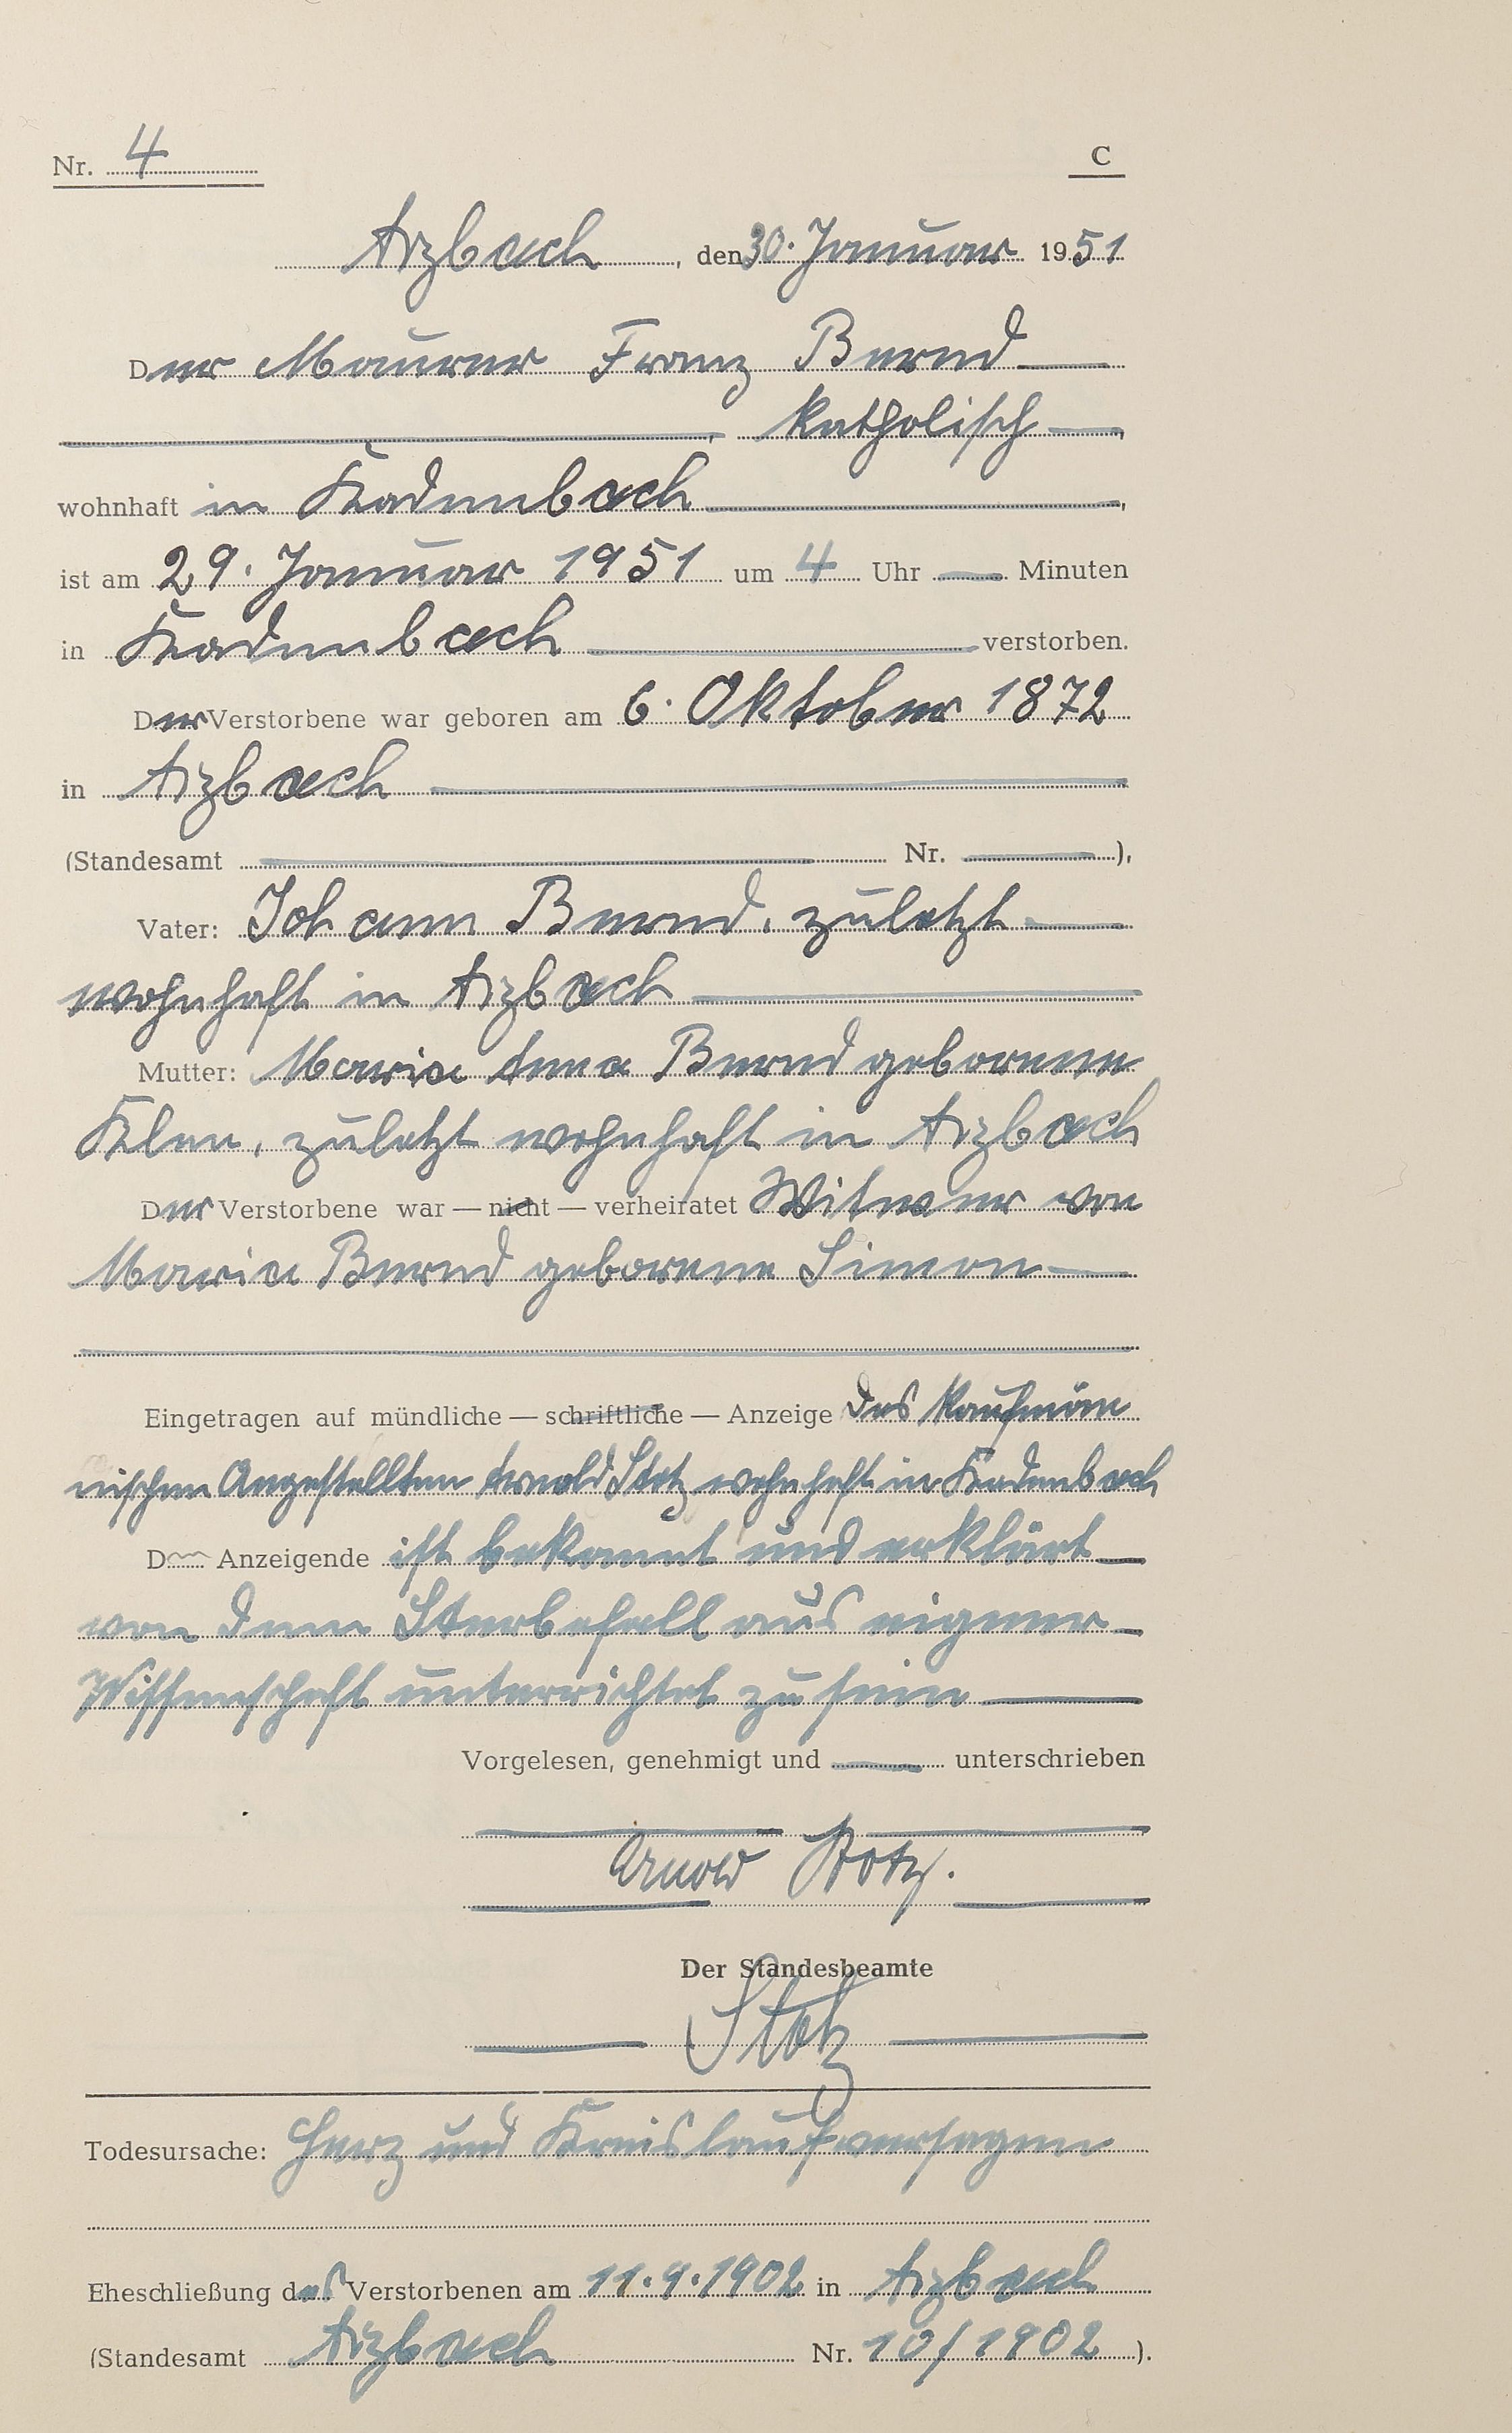 Nr. 4
C
Arzbach, den 30. Januar 1951
Der Maurer Franz Bernd
, katholisch,
wohnhaft in Kadenbach,
ist am 29. Januar 1951 um 4 Uhr — Minuten
in Kadenbach verstorben.
Der Verstorbene war geboren am 6. Oktober 1872
in Arzbach
(Standesamt — Nr. —),
Vater: Johann Bernd, zuletzt
wohnhaft in Arzbach
Mutter: Maria Anna Bernd geborene
zuletzt wohnhaft in Arzbach
Der Verstorbene war — nicht — verheiratet Witwer von
Maria Bernd geborene Simon
Eingetragen auf mündliche — schriftliche — Anzeige des kaufmän
nischen Angestellten Arnold Stotz wohnhaft in Kadenbach
D Anzeigende ist bekannt und erklärt
von dem Sterbefall aus eigener
Wissenschaft unterrichtet zu sein
Vorgelesen, genehmigt und — unterschrieben
Arnold Stotz.
Der Standesbeamte
Stotz
Todesursache: Herz und Kreislaufversagen
Eheschließung des Verstorbenen am 11.9.1902 in Arzbach
(Standesamt Arzbach Nr. 10/1902).